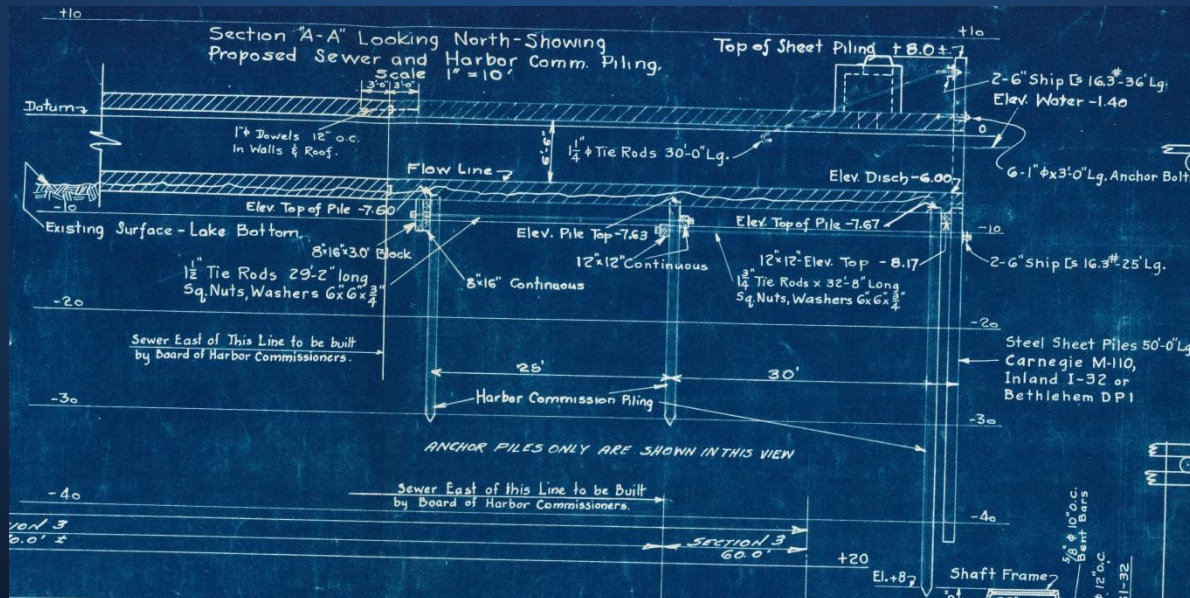 +10
Section "A-A" Looking North-Showing
Proposed Sewer and Harbor Comm. Piling.
Scale 1" = 10'
Top of Sheet Piling +8.0±
+10
3'-0" 3'-0"
2-6" Ship [s 16.3# -36' Lg.
Elev. Water -1.40
Datum
0
1" ϕ Dowels 12" o.c.
In Walls & Roof.
6'-6"
1 1/4 ϕ Tie Rods 30'-0" Lg.
6-1" ϕ x 3'-0" Lg. Anchor Bolt
Flow Line
Elev. Disch -6.00
-10
Elev. Top of Pile -7.60
Existing Surface - Lake Bottom
Elev. Pile Top -7.63
Elev. Top of Pile -7.67
-10
8"x16"x3.0' Block
12"x12" Continuous
12"x12"-Elev. Top -8.17
2-6" Ship [s 16.3# -25' Lg.
1 1/2" Tie Rods 29'-2" long
Sq. Nuts, Washers 6"x6"x3/4"
8"x16" Continuous
1 3/4" Tie Rods x 32'-8" Long
Sq. Nuts, Washers 6"x6"x3/4"
-20
-20
Sewer East of This Line to be built
by Board of Harbor Commissioners.
Steel Sheet Piles 50'-0" Lg
Carnegie M-110,
Inland I-32 or
Bethlehem DP1
25'
30'
Harbor Commission Piling
-30
-30
ANCHOR PILES ONLY ARE SHOWN IN THIS VIEW
Sewer East of this Line to be Built
by Board of Harbor Commissioners.
-40
-40
ION 3
0.0' ±
SECTION 3
60.0'
+20
El.+8
Shaft Frame
5/8 ϕ 10" o.c.
Bent Bars
ϕ 12" o.c.
51-32